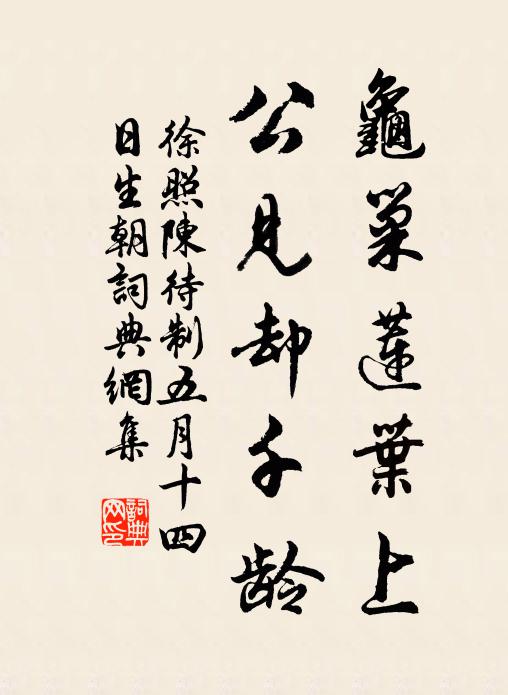 龜巢蓮葉上
公見却千齡
徐照陳待制五月十四
日生朝詞典網集
詞典
网印